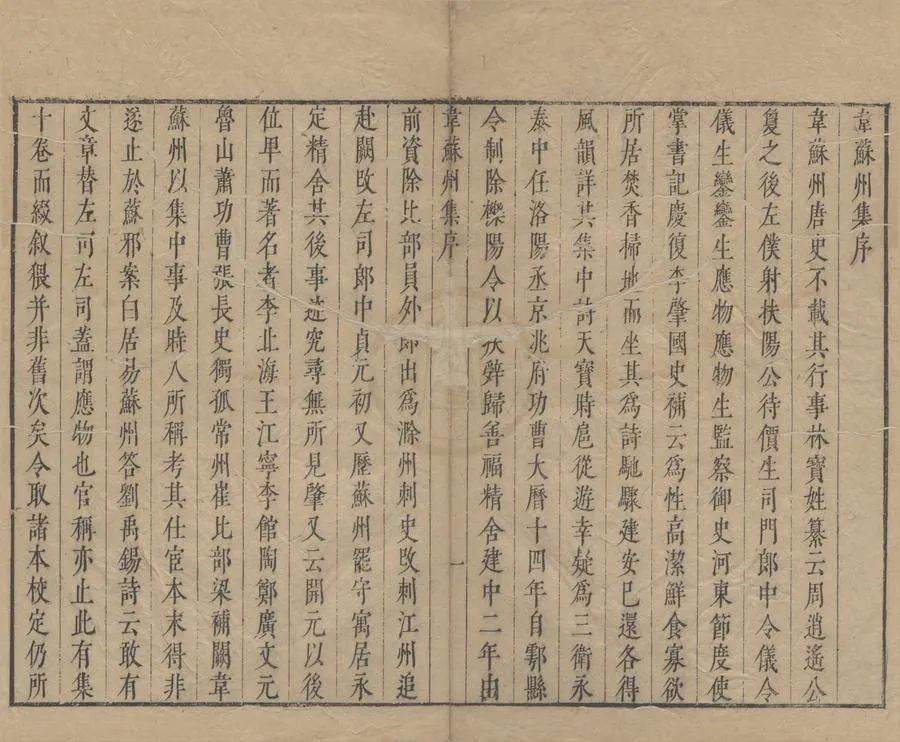 韋蘇州集序
韋蘇州唐史不載其行事林寶姓纂云周逍遙公
敻之後左僕射扶陽公待價生司門郎中令儀令
儀生鑾鑾生應物應物生監察御史河東節度使
掌書記慶復李肇國史補云為性高潔鮮食寡欲
所居焚香掃地而坐其為詩馳驟建安已還各得
風韻詳其集中詩天寶時扈從遊幸疑為三衛永
泰中任洛陽丞京兆府功曹大曆十四年自鄠縣
令制除櫟陽令以疾辭歸善福精舍建中二年由
韋蘇州集序
一
前資除比部員外郎出為滁州刺史改刺江州追
赴闕改左司郎中貞元初又歷蘇州罷守寓居永
定精舍其後事迹究尋無所見肇又云開元以後
位卑而著名者李北海王江寧李館陶鄭廣文元
魯山蕭功曹張長史獨孤常州崔比部梁補闕韋
蘇州以集中事及時人所稱考其仕宦本末得非
遂止於蘇邪案白居易蘇州答劉禹錫詩云敢有
文章替左司左司蓋謂應物也官稱亦止此有集
十卷而綴叙猥并非舊次矣今取諸本校定仍所